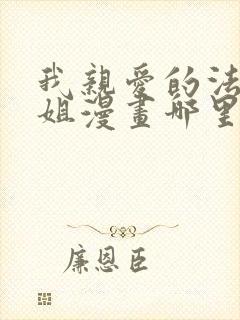 我親愛的法
姐漫畫哪里
廉恩臣